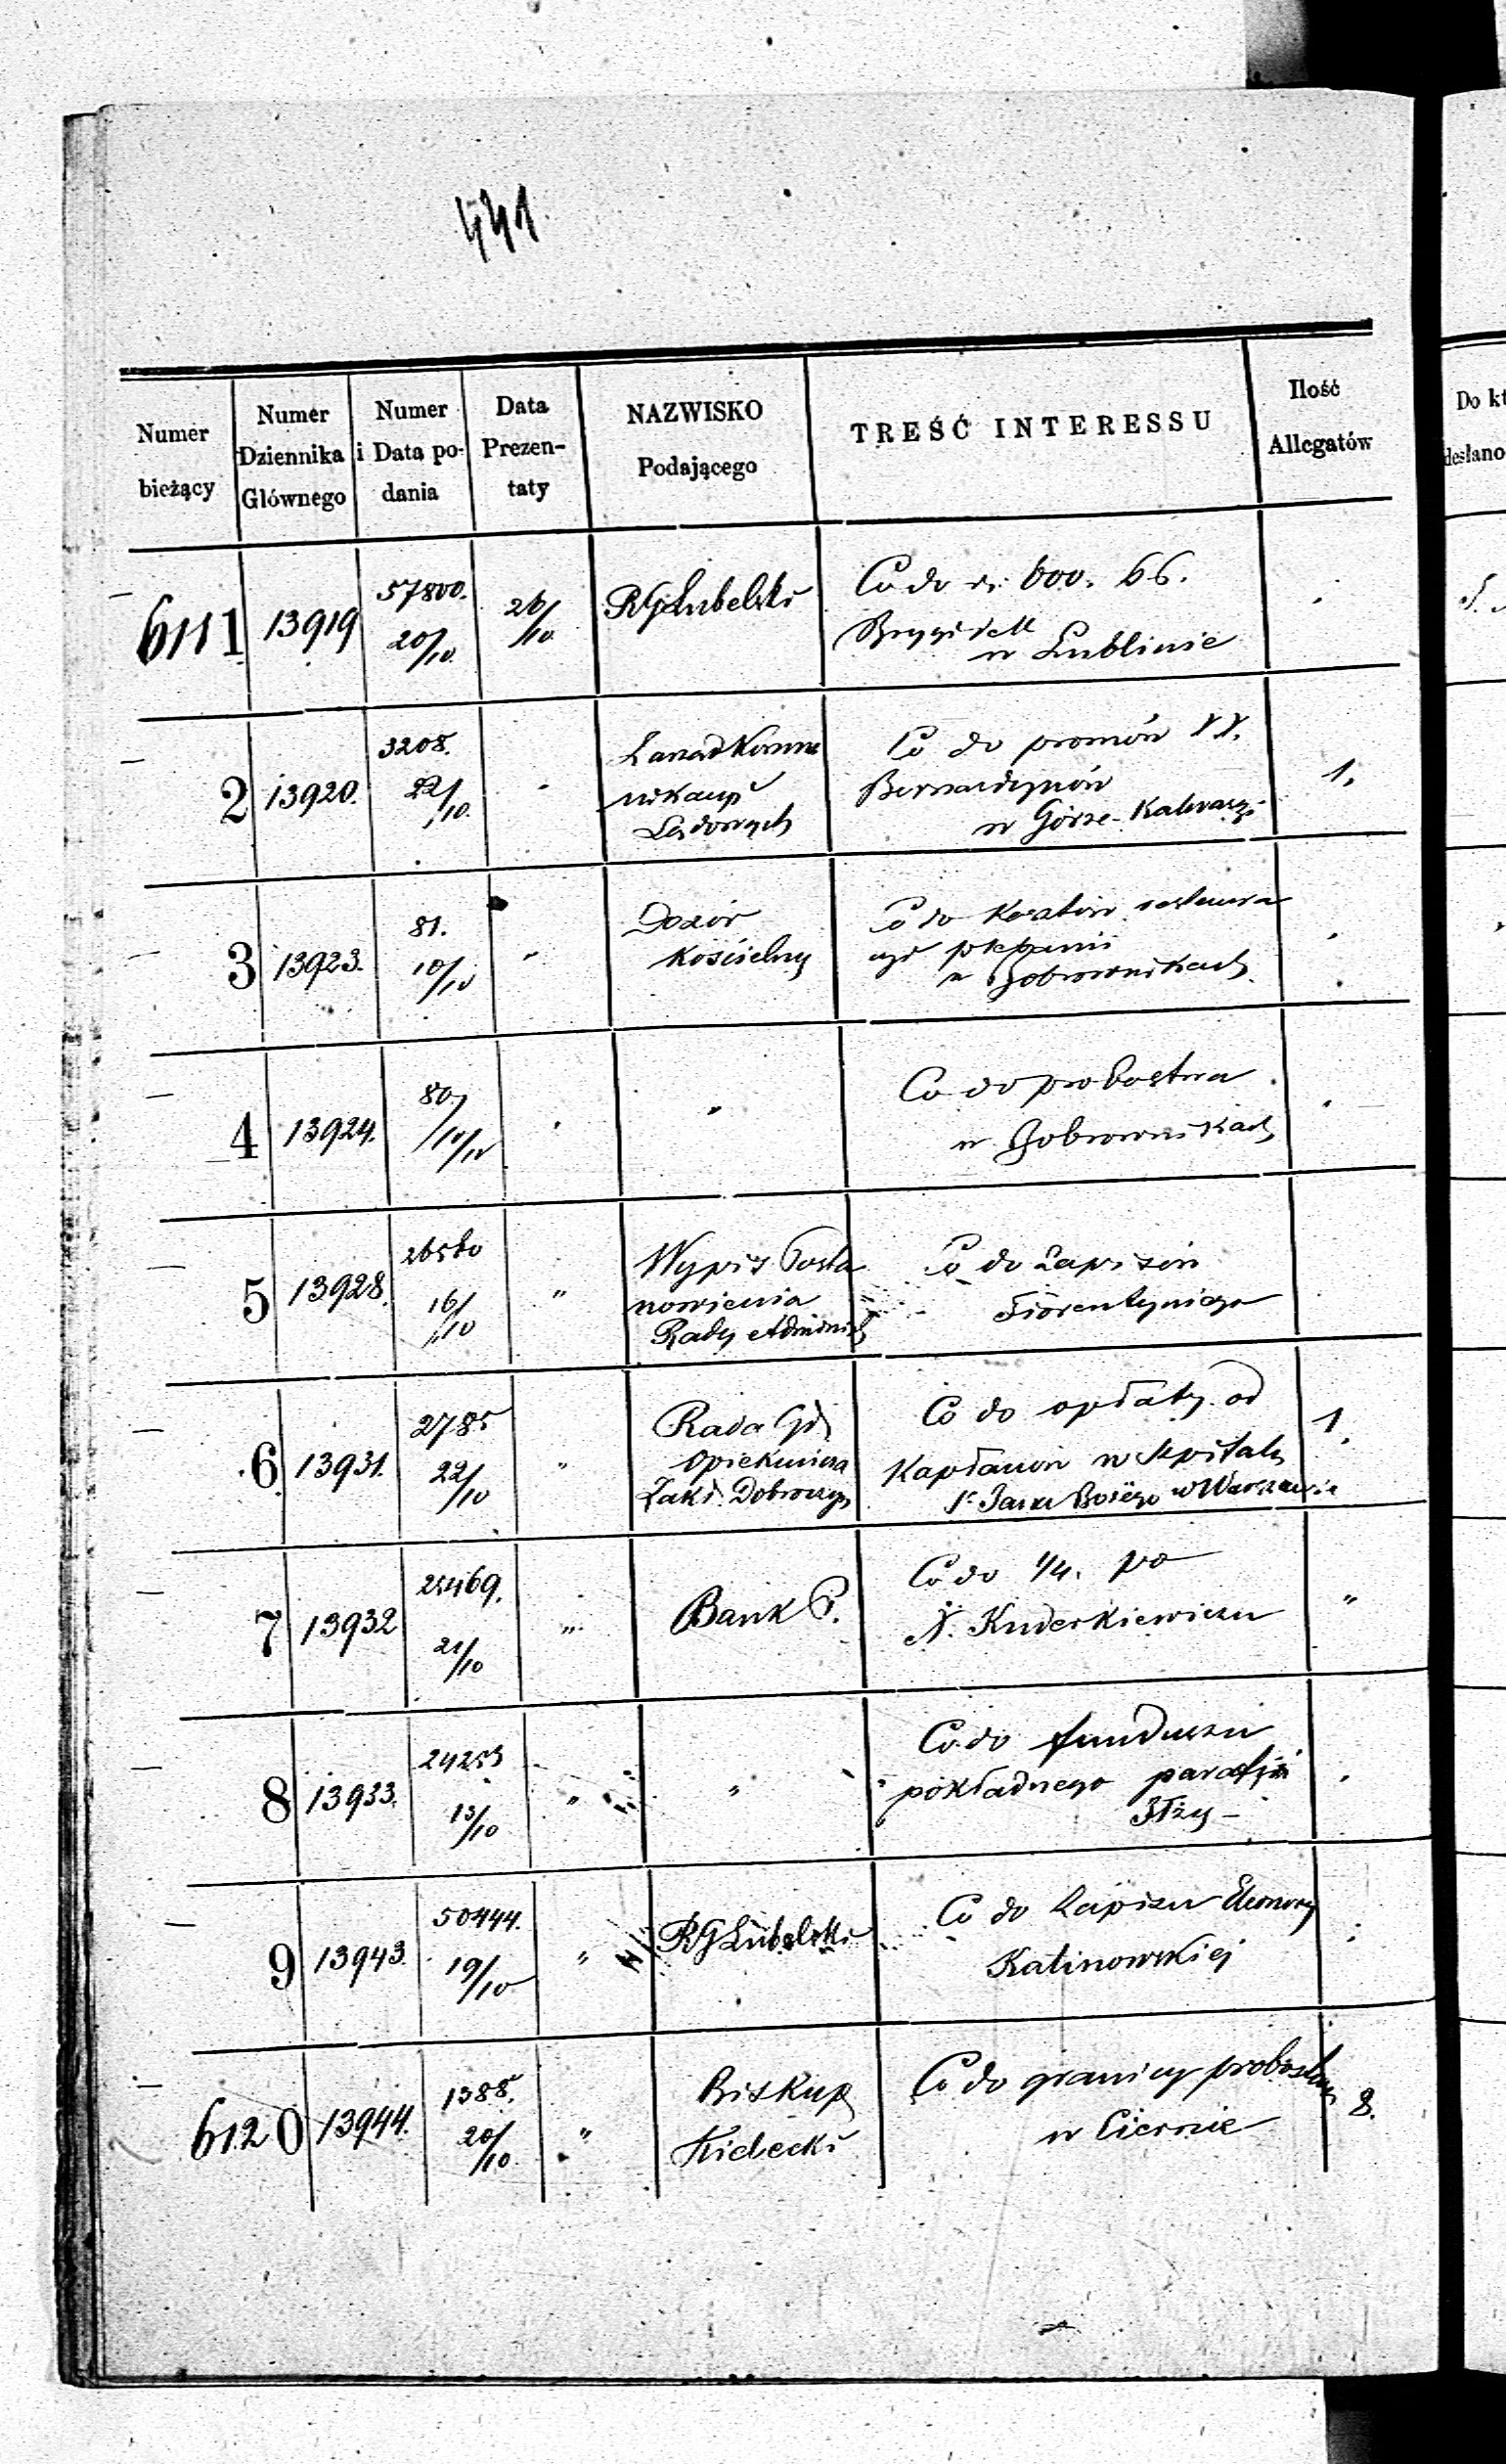 441
Numer bieżący | Numer Dziennika Głównego | Numer i Data podania | Data Prezentaty | NAZWISKO Podającego | TREŚĆ INTERESSU | Ilość Allegatów
Do kt
desłano
6111 | 13919 | 57800. 20/10. | 26/10. | RGLubelski | Co do rs. 600. bb.
Brygidek
w Lublinie
2 | 13920. | 3208. 22/10. | " | Zarząd Kommu
nikacyi
Lądowych | Co do promów XX.
Bernardynów
w Górze-Kalwaryi | 1.
3 | 13923. | 81. 10/10 | " | Dozór
Kościelny | Co do Kosztów restaura
cyi plebanii
w Bobrownikach.
4 | 13924. | 80. 10/10 | " | " | Co do probostwa
w Bobrownikach
5 | 13928. | 26560 16/10 | " | Wypis Posta
nowienia
Rady Administ | Co do Zapisów
Fiorentyniego
6 | 13931. | 2785 22/10 | " | Rada Gł
Opiekuńcza
Zakł. Dobroczyn | Co do opłaty od
Kapłanów w Szpitalu
Sgo Jana Bożego w Warszawie | 1.
7 | 13932 | 25469. 21/10 | " | Bank P. | Co do 1/4. po
X. Kuderkiewiczu | "
8 | 13933. | 24253 13/10 | " | " | Co do funduszu
pokładnego parafii
Iłży -
9 | 13943. | 50444. 19/10 | " | RGLubelski | Co do Zapisu Eleonory
Kalinowskiej
6120 | 13944. | 1388. 20/10 | " | Biskup
Kielecki | Co do granicy probostwa
w Ciernie | 2.